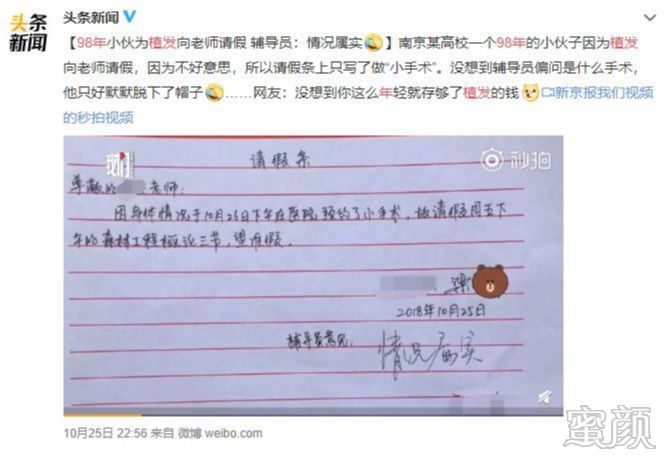 头条新闻
头条
新闻
【98年小伙为植发向老师请假 辅导员：情况属实】南京某高校一个98年的小伙子因为植发
向老师请假，因为不好意思，所以请假条上只写了做“小手术”。没想到辅导员偏问是什么手术，
他只好默默脱下了帽子……网友：没想到你这么年轻就存够了植发的钱 新京报我们视频
的秒拍视频
我们
秒拍
请假条
尊敬的 老师：
因身体情况于10月26日下午在医院预约了小手术，故请假周五下
午的森林工程概论三节，望准假。
梁
2018年10月25日
辅导员意见：
情况属实
10月25日 22:56 来自 微博 weibo.com
蜜颜